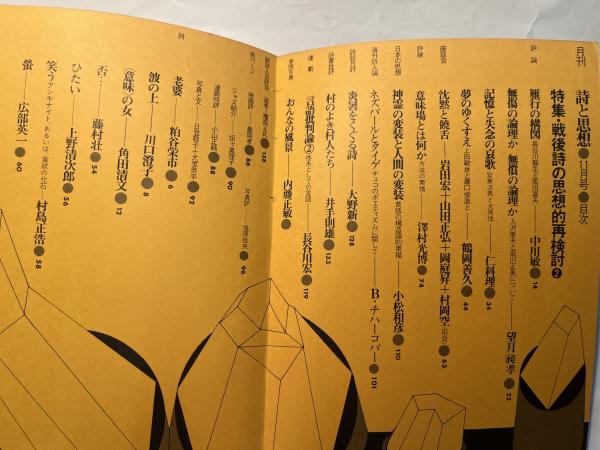 月刊
詩と思想●11月号●目次
特集・戦後詩の思想的再検討❷
評論
雁行の構図 長谷川龍生と黒田喜夫 中川敏●14
無傷の論理か 無償の論理か 入沢康夫と堀川正美について 望月昶孝●25
記憶と失念の哀歌 安東次男と大岡信 仁科理●34
夢のゆくすえ 上田敏雄と瀧口修造と 鶴岡善久●44
座談会
沈黙と饒舌 岩田宏+山田正弘+岡庭昇+村岡空(司会)●63
評論
意味場とは何か 方法の素描 澤村光博●74
日本の思想
神霊の変装と人間の変装 昔話の構造論的素描 小松和彦●110
海外詩人論
ネズバールとアイゲ チェコのポエティズムに関して B・チハーコバー●101
詩誌月評
炎暑をくぐる詩 大野新●128
詩書批評
村のよき村人たち 井手則雄●133
連載
言語批判論② 体系としての言語 長谷川宏●119
連続写真
おんなの風景 内藤正敏●
●138
色ページ
映画評 ●86
ジャズ紹介 ●90
漫画時評 小山正純●88
写真評 ●96
写真と文 ●92
詩
老婆 粕谷栄市●6
波の上 川口澄子●8
〈意味〉の女 角田清文●12
否… 藤村壮●54
ひたい 上野清次郎●56
笑う アンモナイト、あるいは〝貪欲の化石〟 村島正浩●58
螢 広部英一●60